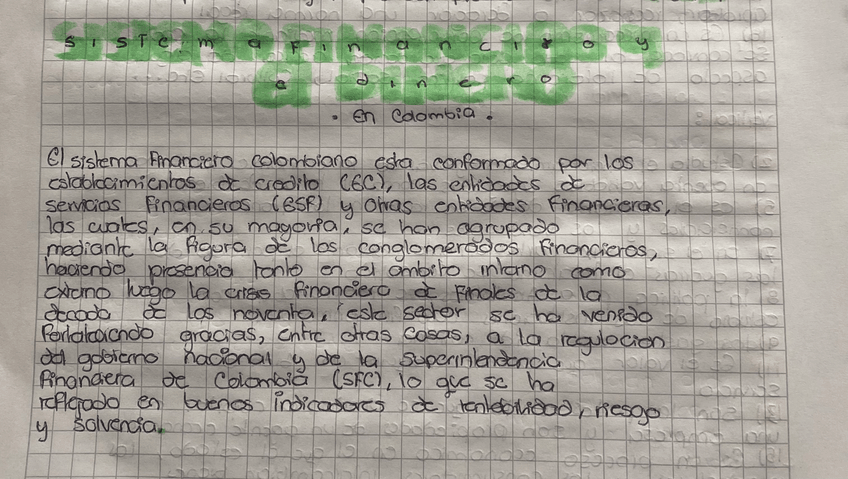 sistema Financiero y
e dinero
• en Colombia •
El sistema Financiero colombiano esta conformado por los
establecimientos de credito (EC), las entidades de
servicios Financieros (ESF) y otras entidades Financieras,
las cuales, en su mayoria, se han agrupado
mediante la Figura de los conglomerados Financieros,
haciendo presencia tanto en el ambito interno como
externo luego la crisis Financiera de Finales de la
decada de los noventa, este sector se ha venido
Fortaleciendo gracias, entre otras cosas, a la regulacion
del gobierno nacional y de la superintendencia
Financiera de Colombia (SFC), lo que se ha
reflejado en buenos indicadores de rentabilidad, riesgo
y solvencia.